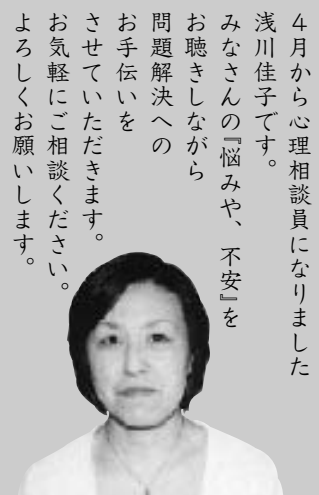 ４月から心理相談員になりました
浅川佳子です。
みなさんの『悩みや、不安』を
お聴きしながら
問題解決への
お手伝いを
させていただきます。
お気軽にご相談ください。
よろしくお願いします。